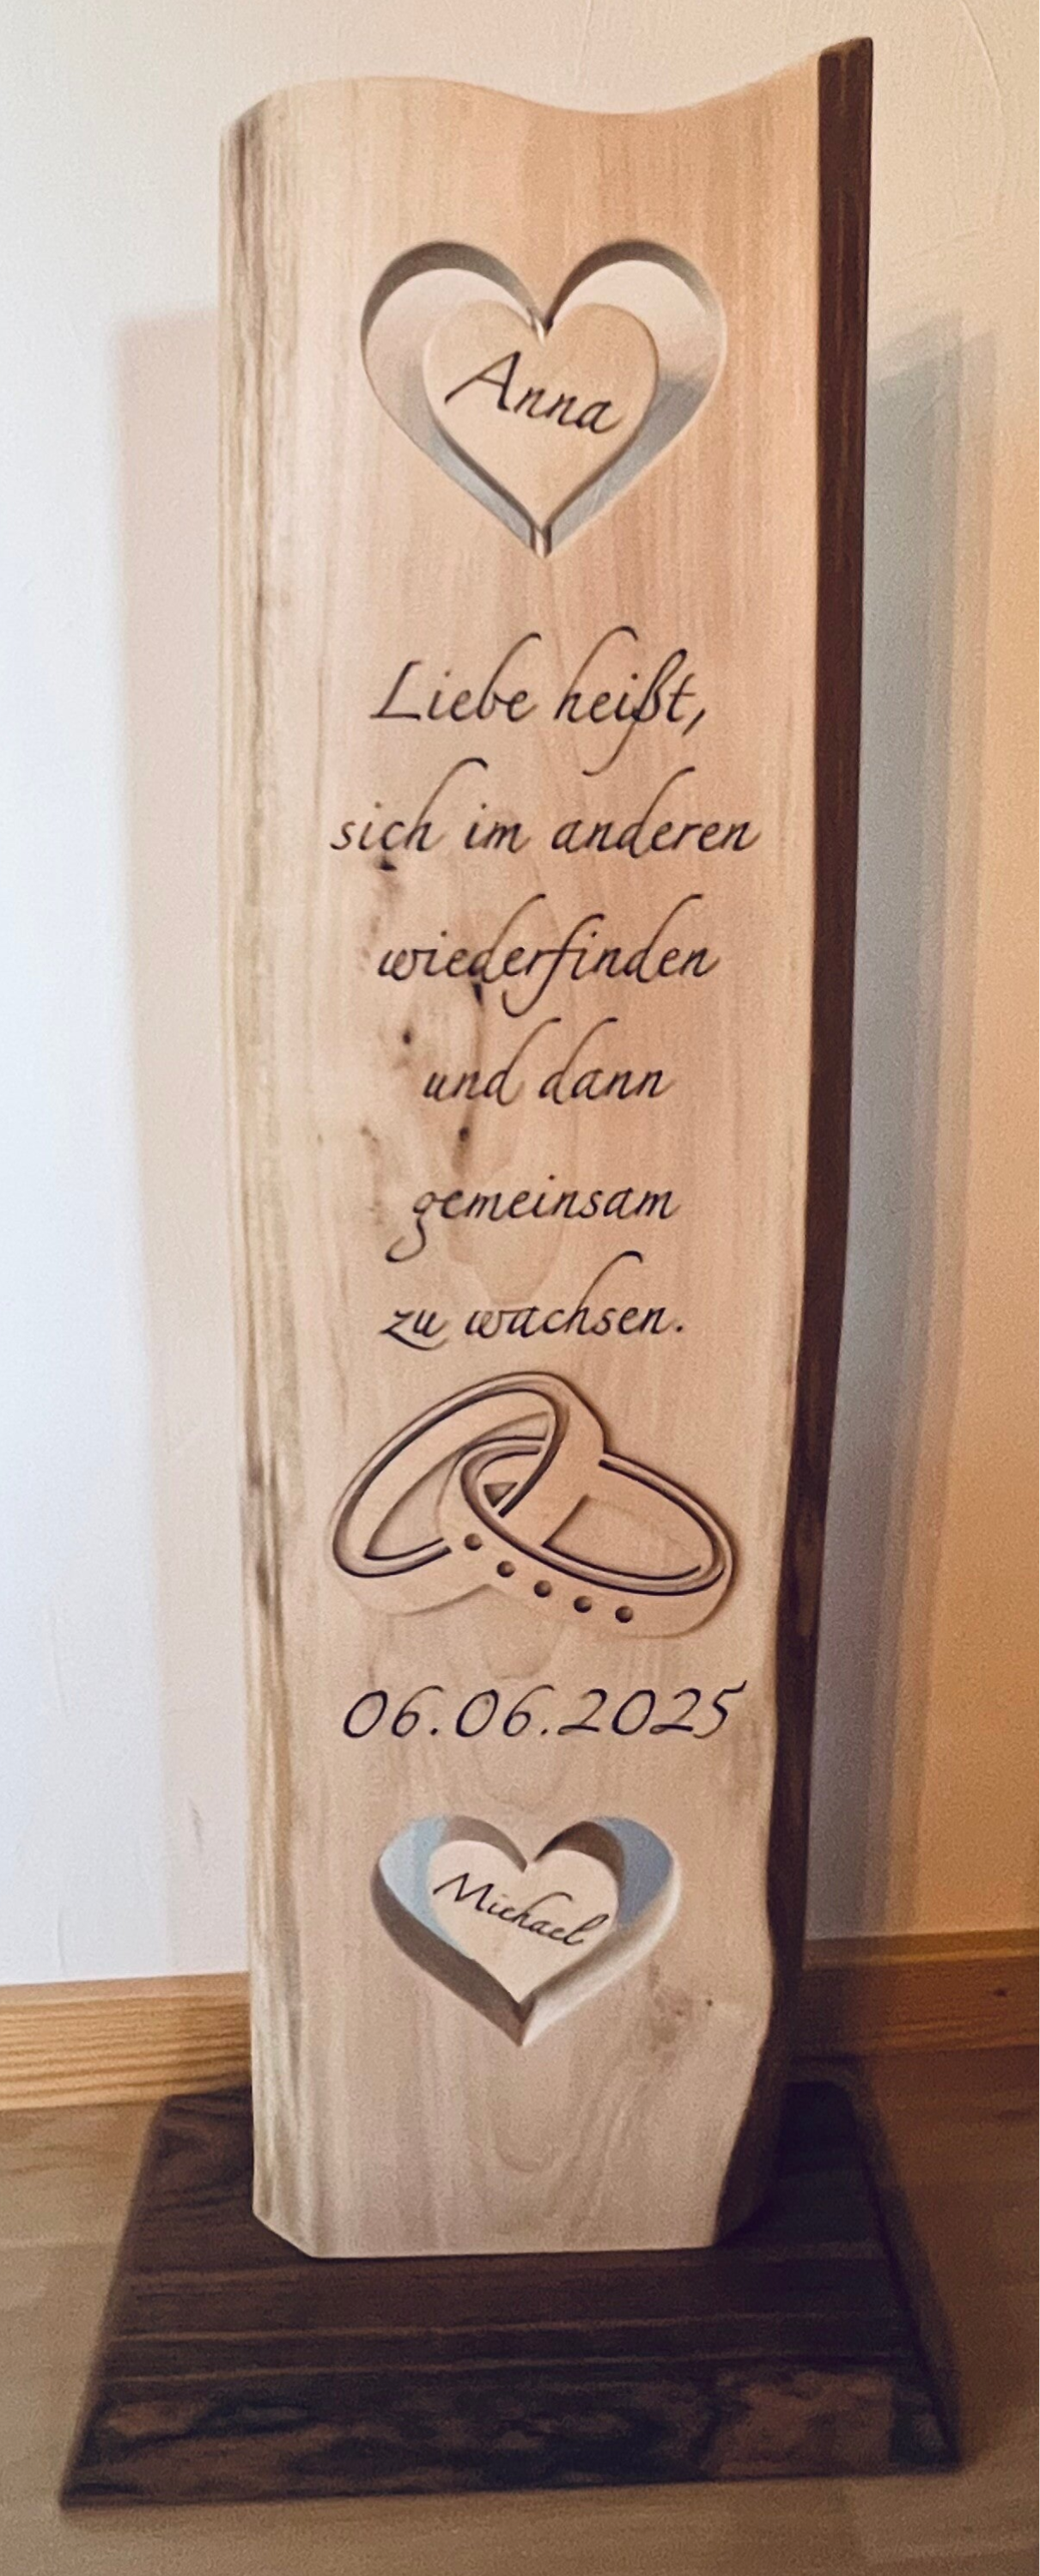 Anna
Liebe heißt,
sich im anderen
wiederfinden
und dann
gemeinsam
zu wachsen.
06.06.2025
Michael